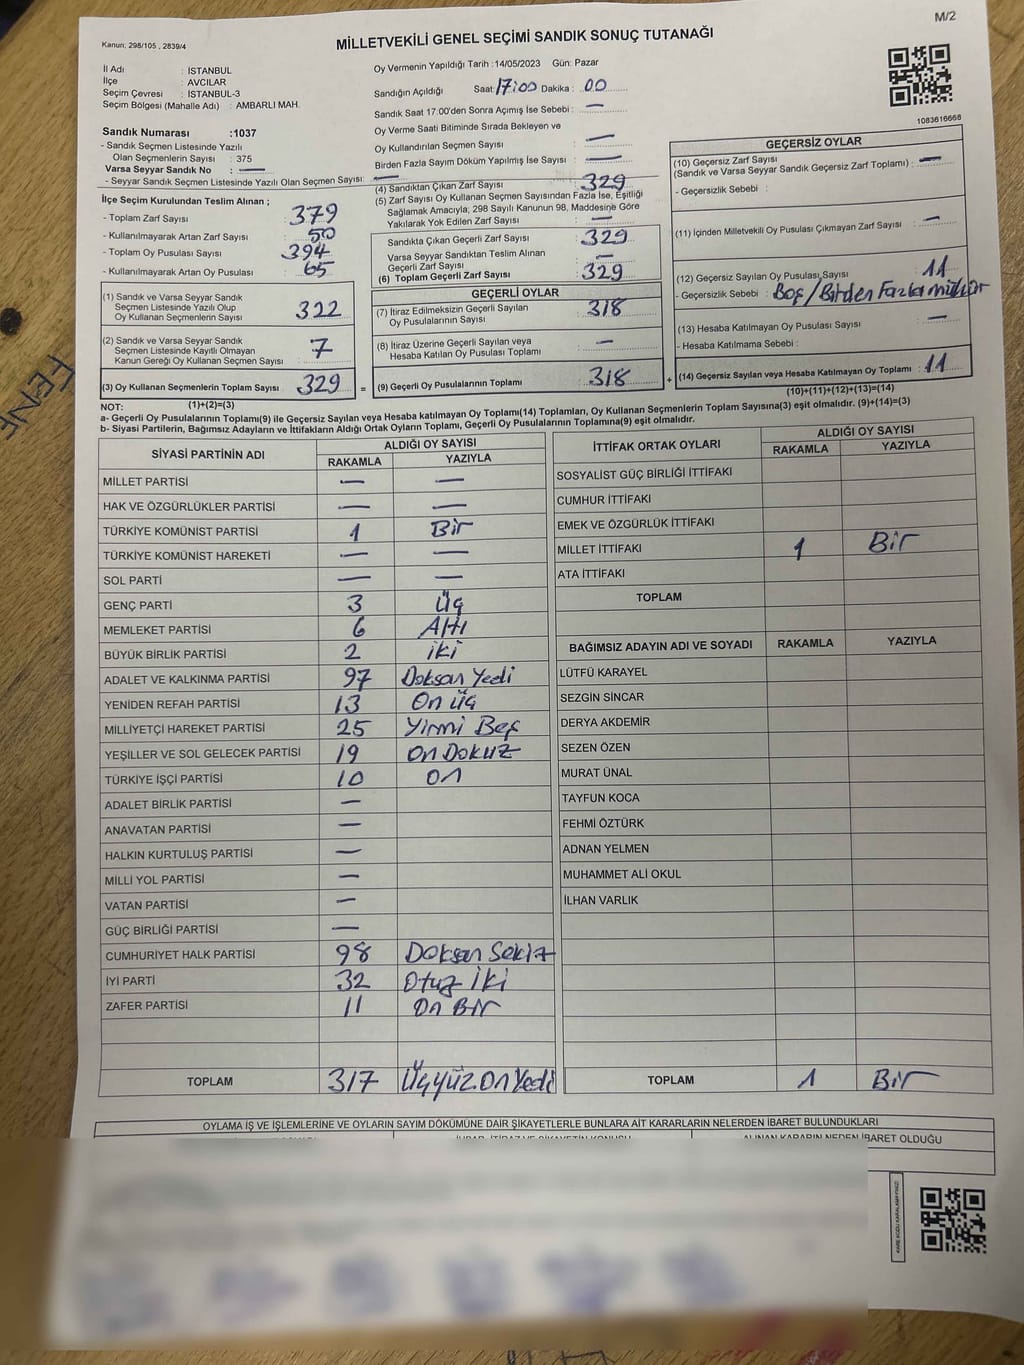 M/2
Kanun: 298/105 , 2839/4
MİLLETVEKİLİ GENEL SEÇİMİ SANDIK SONUÇ TUTANAĞI
İl Adı : İSTANBUL
İlçe : AVCILAR
Seçim Çevresi : İSTANBUL-3
Seçim Bölgesi (Mahalle Adı) : AMBARLI MAH.
Sandık Numarası :1037
- Sandık Seçmen Listesinde Yazılı
Olan Seçmenlerin Sayısı : 375
Varsa Seyyar Sandık No : —
- Seyyar Sandık Seçmen Listesinde Yazılı Olan Seçmen Sayısı: —
İlçe Seçim Kurulundan Teslim Alınan ;
- Toplam Zarf Sayısı : 379
- Kullanılmayarak Artan Zarf Sayısı : 50
- Toplam Oy Pusulası Sayısı : 394
- Kullanılmayarak Artan Oy Pusulası : 65
(1) Sandık ve Varsa Seyyar Sandık
Seçmen Listesinde Yazılı Olup
Oy Kullanan Seçmenlerin Sayısı : 322
(2) Sandık ve Varsa Seyyar Sandık
Seçmen Listesinde Kayıtlı Olmayan
Kanun Gereği Oy Kullanan Seçmen Sayısı : 7
(3) Oy Kullanan Seçmenlerin Toplam Sayısı : 329
(1)+(2)=(3)
Oy Vermenin Yapıldığı Tarih :14/05/2023 Gün: Pazar
Sandığın Açıldığı Saat: 17:00 Dakika : 00
Sandık Saat 17.00'den Sonra Açımış İse Sebebi : —
Oy Verme Saati Bitiminde Sırada Bekleyen ve
Oy Kullandırılan Seçmen Sayısı : —
Birden Fazla Sayım Döküm Yapılmış İse Sayısı : —
(4) Sandıktan Çıkan Zarf Sayısı : 329
(5) Zarf Sayısı Oy Kullanan Seçmen Sayısından Fazla İse, Eşitliği
Sağlamak Amacıyla, 298 Sayılı Kanunun 98. Maddesine Göre
Yakılarak Yok Edilen Zarf Sayısı : —
Sandıkta Çıkan Geçerli Zarf Sayısı : 329
Varsa Seyyar Sandıktan Teslim Alınan
Geçerli Zarf Sayısı : —
(6) Toplam Geçerli Zarf Sayısı : 329
GEÇERLİ OYLAR
(7) İtiraz Edilmeksizin Geçerli Sayılan
Oy Pusulalarının Sayısı : 318
(8) İtiraz Üzerine Geçerli Sayılan veya
Hesaba Katılan Oy Pusulası Toplamı : —
= (9) Geçerli Oy Pusulalarının Toplamı : 318 +
1083616668
GEÇERSİZ OYLAR
(10) Geçersiz Zarf Sayısı
(Sandık ve Varsa Seyyar Sandık Geçersiz Zarf Toplamı) : —
- Geçersizlik Sebebi :
(11) İçinden Milletvekili Oy Pusulası Çıkmayan Zarf Sayısı : —
(12) Geçersiz Sayılan Oy Pusulası Sayısı : 11
- Geçersizlik Sebebi : Boş/Birden Fazla mühür
(13) Hesaba Katılmayan Oy Pusulası Sayısı : —
- Hesaba Katılmama Sebebi :
(14) Geçersiz Sayılan veya Hesaba Katılmayan Oy Toplamı : 11
(10)+(11)+(12)+(13)=(14)
NOT:
a- Geçerli Oy Pusulalarının Toplamı(9) ile Geçersiz Sayılan veya Hesaba katılmayan Oy Toplamı(14) Toplamları, Oy Kullanan Seçmenlerin Toplam Sayısına(3) eşit olmalıdır. (9)+(14)=(3)
b- Siyasi Partilerin, Bağımsız Adayların ve İttifakların Aldığı Ortak Oyların Toplamı, Geçerli Oy Pusulalarının Toplamına(9) eşit olmalıdır.
SİYASİ PARTİNİN ADI ALDIĞI OY SAYISI
RAKAMLA YAZIYLA
MİLLET PARTİSİ — —
HAK VE ÖZGÜRLÜKLER PARTİSİ — —
TÜRKİYE KOMÜNİST PARTİSİ 1 Bir
TÜRKİYE KOMÜNİST HAREKETİ — —
SOL PARTİ — —
GENÇ PARTİ 3 Üç
MEMLEKET PARTİSİ 6 Altı
BÜYÜK BİRLİK PARTİSİ 2 iki
ADALET VE KALKINMA PARTİSİ 97 Doksan Yedi
YENİDEN REFAH PARTİSİ 13 On üç
MİLLİYETÇİ HAREKET PARTİSİ 25 Yirmi Beş
YEŞİLLER VE SOL GELECEK PARTİSİ 19 On Dokuz
TÜRKİYE İŞÇİ PARTİSİ 10 on
ADALET BİRLİK PARTİSİ —
ANAVATAN PARTİSİ —
HALKIN KURTULUŞ PARTİSİ —
MİLLİ YOL PARTİSİ —
VATAN PARTİSİ —
GÜÇ BİRLİĞİ PARTİSİ —
CUMHURİYET HALK PARTİSİ 98 Doksan Sekiz
İYİ PARTİ 32 Otuz İki
ZAFER PARTİSİ 11 On Bir
TOPLAM 317 Üçyüz On Yedi
İTTİFAK ORTAK OYLARI ALDIĞI OY SAYISI
RAKAMLA YAZIYLA
SOSYALİST GÜÇ BİRLİĞİ İTTİFAKI
CUMHUR İTTİFAKI
EMEK VE ÖZGÜRLÜK İTTİFAKI
MİLLET İTTİFAKI 1 Bir
ATA İTTİFAKI
TOPLAM
BAĞIMSIZ ADAYIN ADI VE SOYADI RAKAMLA YAZIYLA
LÜTFÜ KARAYEL
SEZGİN SİNCAR
DERYA AKDEMİR
SEZEN ÖZEN
MURAT ÜNAL
TAYFUN KOCA
FEHMİ ÖZTÜRK
ADNAN YELMEN
MUHAMMET ALİ OKUL
İLHAN VARLIK
TOPLAM 1 Bir
OYLAMA İŞ VE İŞLEMLERİNE VE OYLARIN SAYIM DÖKÜMÜNE DAİR ŞİKAYETLERLE BUNLARA AİT KARARLARIN NELERDEN İBARET BULUNDUKLARI
İHBAR, İTİRAZ VE ŞİKAYETİN KONUSU ALINAN KARARIN NEDEN İBARET OLDUĞU
KARE KODU KARALAMAYINIZ!
FENE